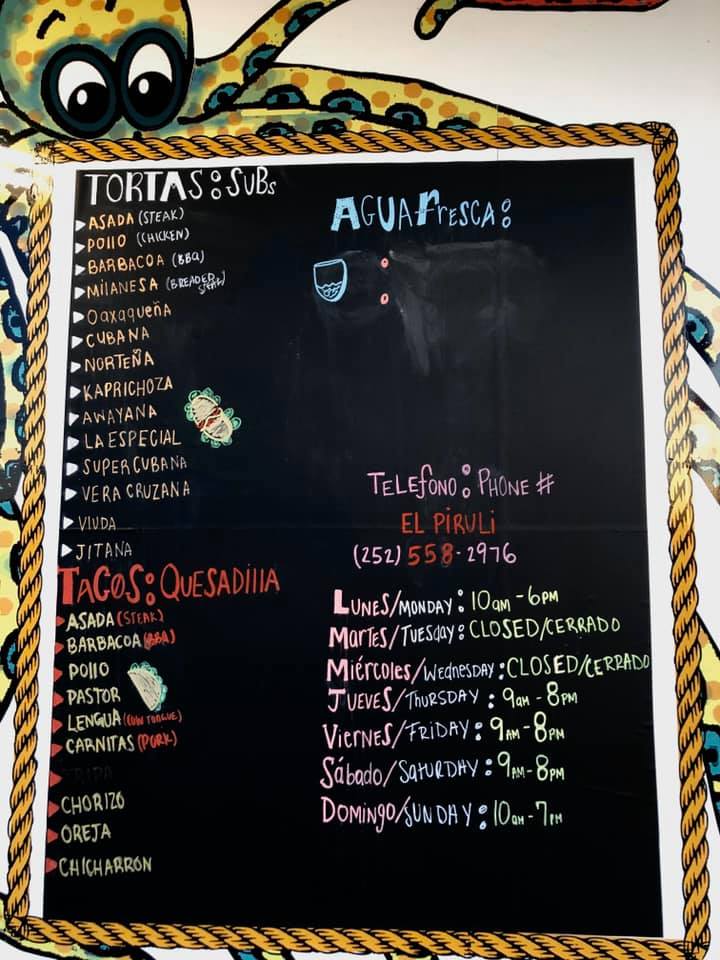 TORTAS: SUBs
ASADA (STEAK)
POllO (CHICKEN)
BARBACOA (BBQ)
MilANESA (BREADED STEAK)
OaXAQUEÑA
CUBANA
NORTEÑA
KAPRICHOZA
AWAYANA
LA ESPECIAL
SUPER CUBANA
VERA CRUZANA
VIUDA
JITANA
TACOS: QUESADIllA
ASADA (STEAK)
BARBACOA (BBQ)
POllO
PASTOR
LENGUA (COW TONGUE)
CARNITAS (PORK)
TRIPA
CHORIZO
OREJA
CHICHARRON
AGUA FRESCA:
TELEfONO: PHONE #
EL PIRULI
(252) 558-2976
LUNES/MONDAY: 10am - 6PM
MARTES/TUESDAY: CLOSED/CERRADO
MiéRCOLES/WEDNESDAY: CLOSED/CERRADO
JUEVES/THURSDAY: 9am - 8PM
ViERNES/FRIDAY: 9AM - 8PM
SÁbADO/SATURDAY: 9AM - 8PM
DOMiNGO/SUNDAY: 10am - 7PM